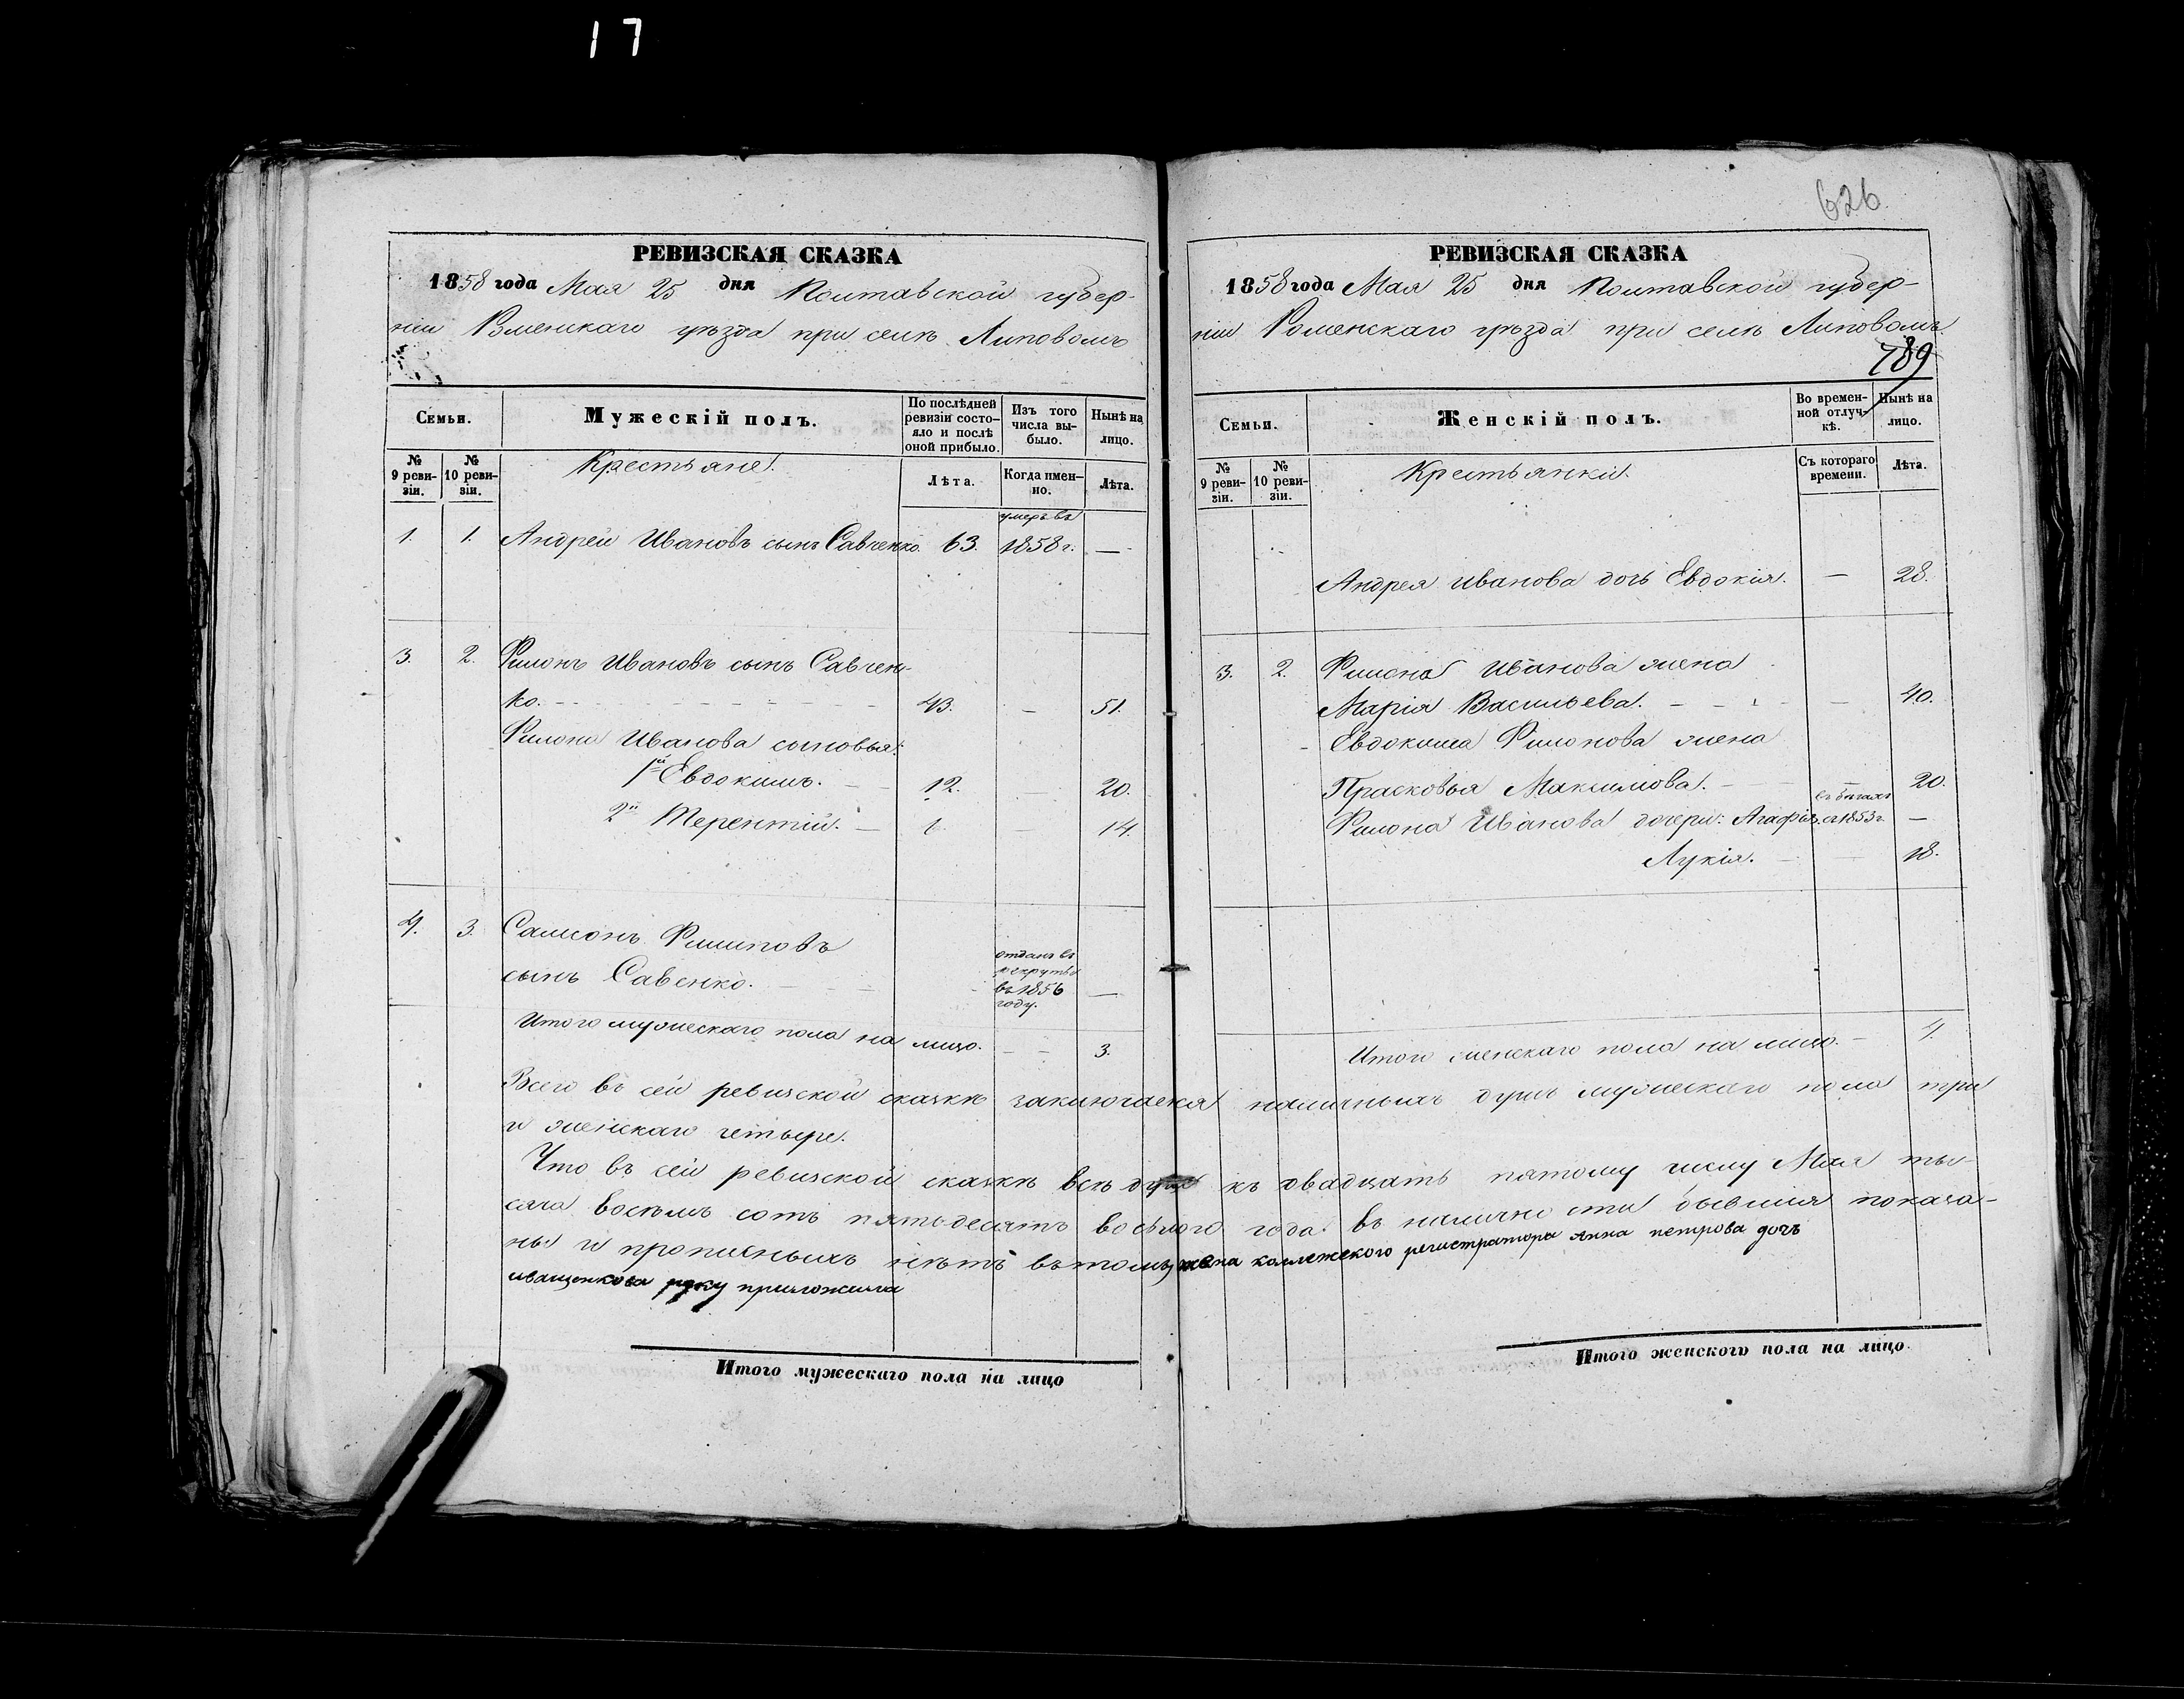 17
626
РЕВИЗСКАЯ СКАЗКА
1858 года Мая 25 дня Полтавской губер-
ніи Роменскаго уѣзда при селѣ Липовомъ
Семьи.
Мужескій полъ.
По послѣдней ревизіи состо-яло и послѣ оной прибыло.
Изъ того числа вы-было.
Нынѣ на лицо.
№ 9 реви-зіи.
№ 10 реви-зіи.
Крестьяне.
Лѣта.
Когда имен-но.
Лѣта.
умеръ въ
1. 1. Андрей Ивановъ сынъ Савченко. 63. 1858 г. —
3. 2. Филонъ Ивановъ сынъ Савчен-
ко. - - - 43. — 51.
Филона Иванова сыновья:
1й Евдокимъ. — 12. — 20.
2й Терентій. — — 14.
4. 3. Самсонъ Филиповъ
сынъ Савенко.
отданъ въ
рекруты
въ 1856 —
году.
Итого мужескаго пола на лицо. — — 3.
РЕВИЗСКАЯ СКАЗКА
1858 года Мая 25 дня Полтавской губер-
ніи Роменскаго уѣзда при селѣ Липовомъ.
789
Семьи.
Женскій полъ.
Во времен-ной отлуч-кѣ.
Нынѣ на лицо.
№ 9 реви-зіи.
№ 10 реви-зіи.
Крестьянки.
Съ котораго времени.
Лѣта.
Андрея Иванова дочь Евдокія. — 28.
3. 2. Филона Иванова жена
Марія Васильева. - - - — 40.
Евдокима Филонова жена
Прасковья Максимова. — — 20.
въ бѣгахъ
Филона Иванова дочери: Агафія, съ 1853 г. —
Лукія. — — 18.
Итого женскаго пола на лицо. — 4.
Всего въ сей ревизской сказкѣ заключается наличныхъ душъ мужескаго пола три
и женскаго четыре.
Что въ сей ревизской сказкѣ всѣ души къ двадцать пятому числу Мая ты-
сяча восемь сотъ пятьдесятъ восьмого года въ наличности бывшія показа-
ны и прописныхъ нѣтъ въ томъ жена коллежского регистратора Анна петрова дочь
иващенкова руку приложила
Итого мужескаго пола на лицо
Итого женского пола на лицо.